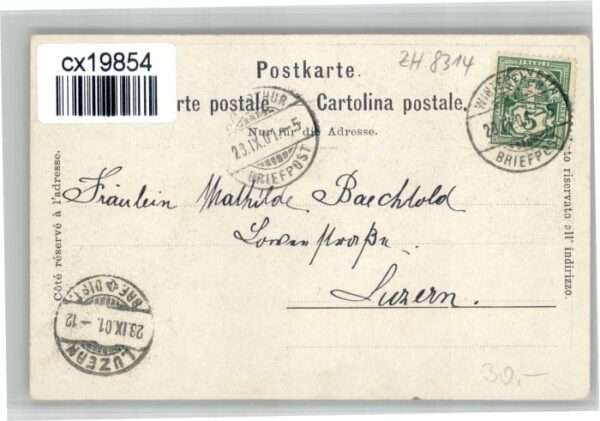 cx19854
ZH 8314
Postkarte.
rte postale. Cartolina postale.
Nur für die Adresse.
WINTERTHUR
23.IX.01.-5
BRIEFPOST
5
Fräulein Mathilde Baechtold
Löwenstraße.
Luzern.
Côté réservé à l'adresse.
to riservato all' indirizzo.
LUZERN
23.IX.01.-12
BRF. DIST.
30.-